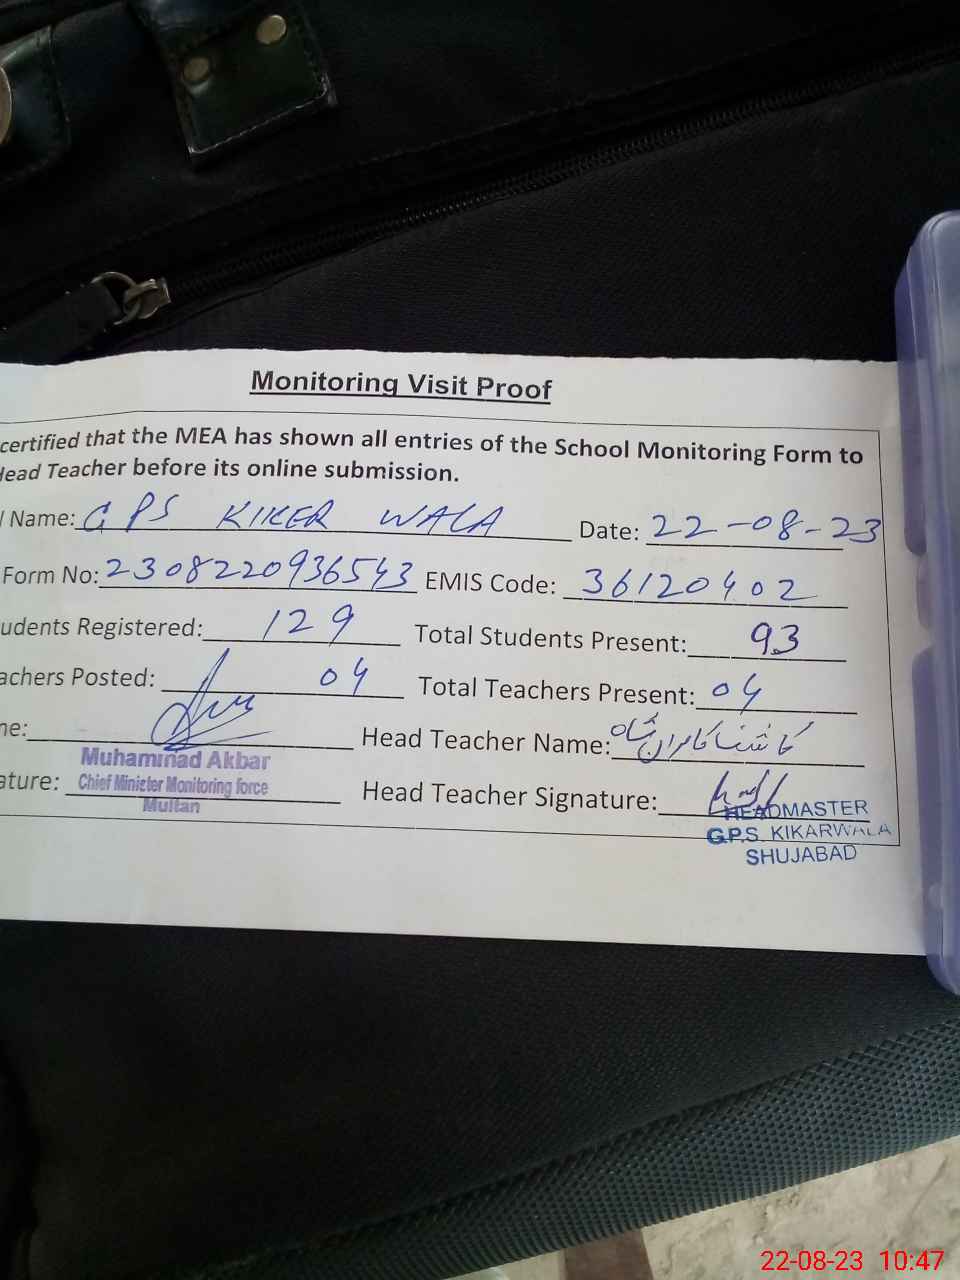 Monitoring Visit Proof
certified that the MEA has shown all entries of the School Monitoring Form to
Head Teacher before its online submission.
l Name: GPS KIKER WALA Date: 22-08-23
Form No: 2308220936543 EMIS Code: 36120402
udents Registered: 129 Total Students Present: 93
achers Posted: 04 Total Teachers Present: 04
me: Head Teacher Name: کامران شاہ
Muhammad Akbar
ature: Chief Minister Monitoring force Head Teacher Signature:
Multan
HEADMASTER
G.P.S. KIKARWALA
SHUJABAD
22-08-23 10:47